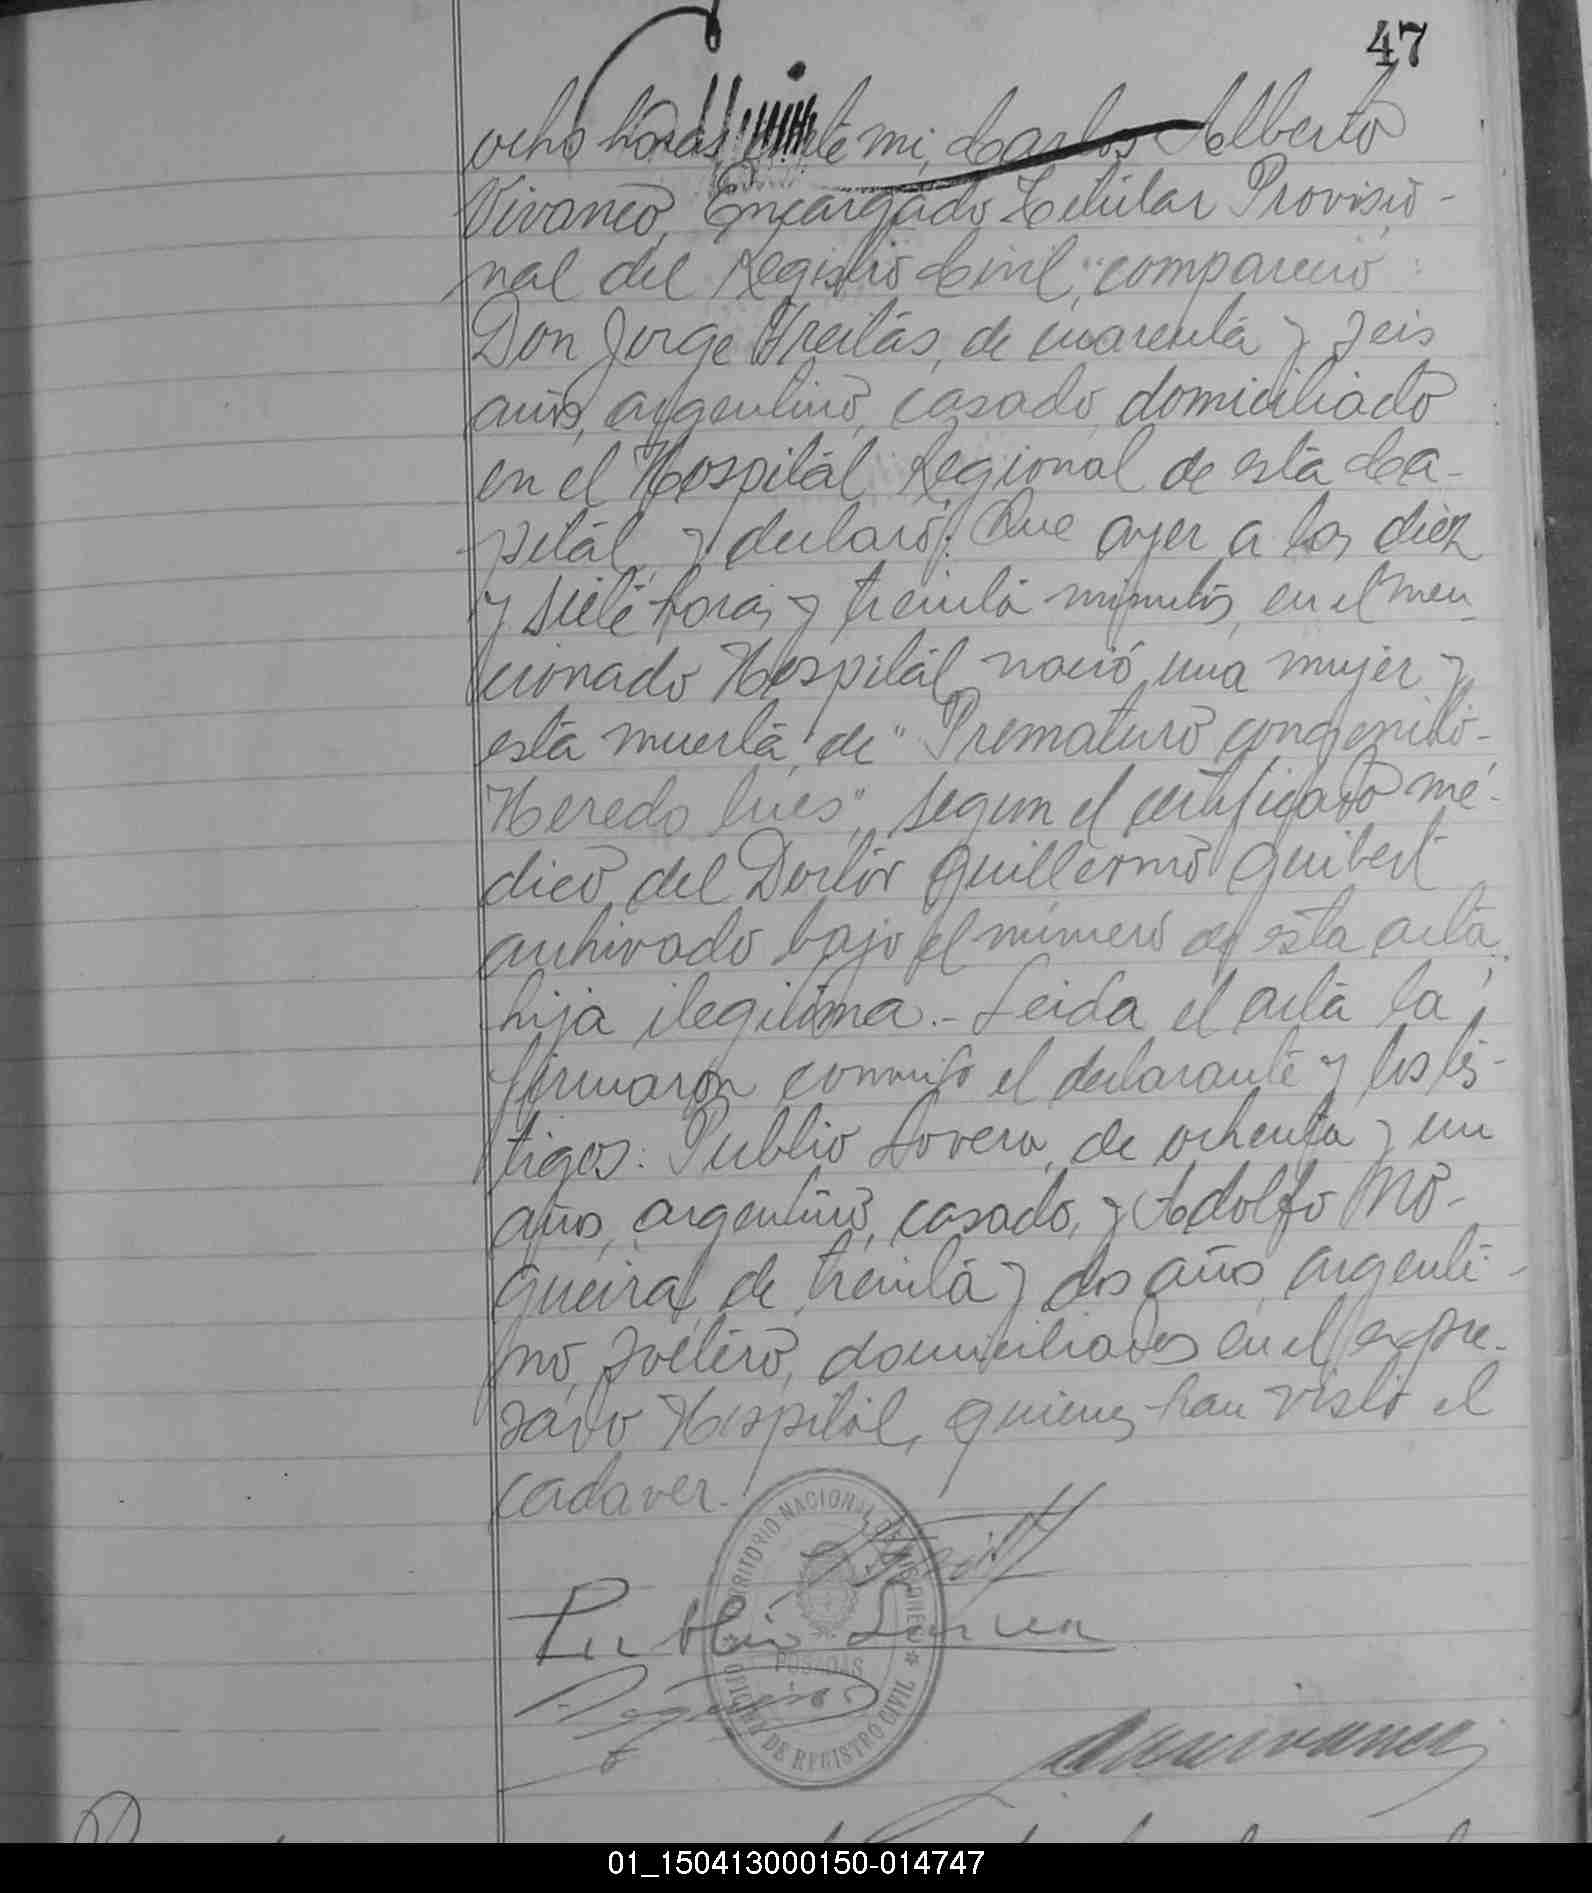 47
ocho horas ante mi, Carlos Alberto
Vivanco, Encargado Titular Provisio-
nal del Registro Civil, compareció:
Don Jorge Freitas, de cuarenta y seis
años, argentino, casado, domiciliado
en el Hospital Regional de esta Ca-
pital, y declaró: Que ayer a las diez
y siete horas y treinta minutos, en el men-
cionado Hospital nació una mujer y
está muerta, de "Prematuro congenito-
Heredo lues", segun el certificado mé-
dico del Doctor Guillermo Guibert
archivado bajo el número de esta acta,
hija ilegitima.- Leida el acta la
firmaron conmigo el declarante y los tes-
tigos: Publio Lovera, de ochenta y un
años, argentino, casado, y Adolfo No-
gueira, de treinta y dos años, argenti-
no, soltero, domiciliados en el expre-
sado Hospital, quienes han visto el
cadaver.-
TERRITORIO NACIONAL DE MISIONES
Publio Lovera
POSADAS
* OFICINA DE REGISTRO CIVIL *
01_150413000150-014747